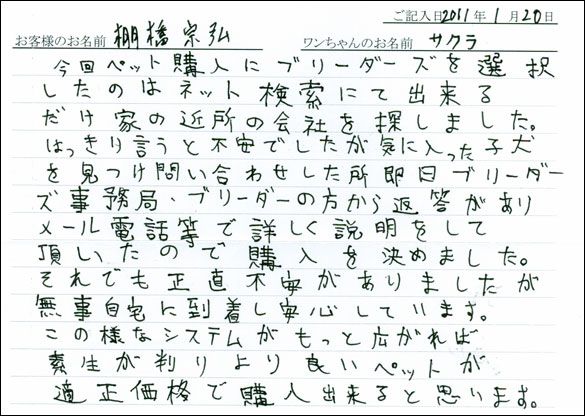 ご記入日2011年1月20日
お客様のお名前 棚橋宗弘 ワンちゃんのお名前 サクラ
今回ペット購入にブリーダーズを選択
したのはネット検索にて出来る
だけ家の近所の会社を探しました。
はっきり言うと不安でしたが気に入った子犬
を見つけ問い合わせした所即日ブリーダー
ズ事務局・ブリーダーの方から返答があり
メール電話等で詳しく説明をして
頂いたので購入を決めました。
それでも正直不安がありましたが
無事自宅に到着し安心しています。
この様なシステムがもっと広がれば
素生が判りより良いペットが
適正価格で購入出来ると思います。